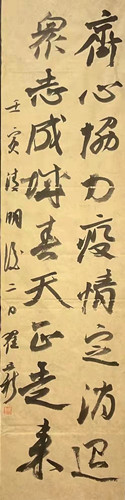 齊心協力疫情定消退
衆志成城春天正走来
壬寅清明後二日